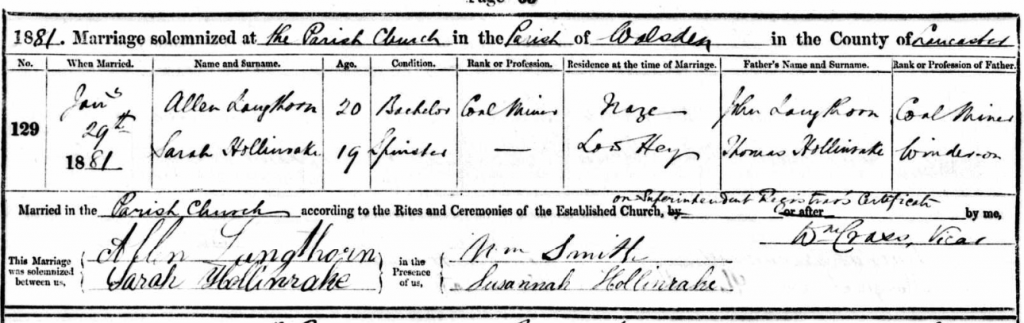 Page
1881. Marriage solemnized at the Parish Church in the Parish of Walsden in the County of Lancaster
No. When Married. Name and Surname. Age. Condition. Rank or Profession. Residence at the time of Marriage. Father's Name and Surname. Rank or Profession of Father.
129 Jany 29th 1881 Allen Langthorn 20 Bachelor Coal Miner Naze John Langthorn Coal Miner
Sarah Hollinrake 19 Spinster — Low Hey Thomas Hollinrake Winder-on
on Superintendent Registrar's Certificate
Married in the Parish Church according to the Rites and Ceremonies of the Established Church, by or after by me,
Wm Cross, Vicar
This Marriage was solemnized between us, Allen Langthorn in the Presence of us, Wm Smith
Sarah Hollinrake Susannah Hollinrake